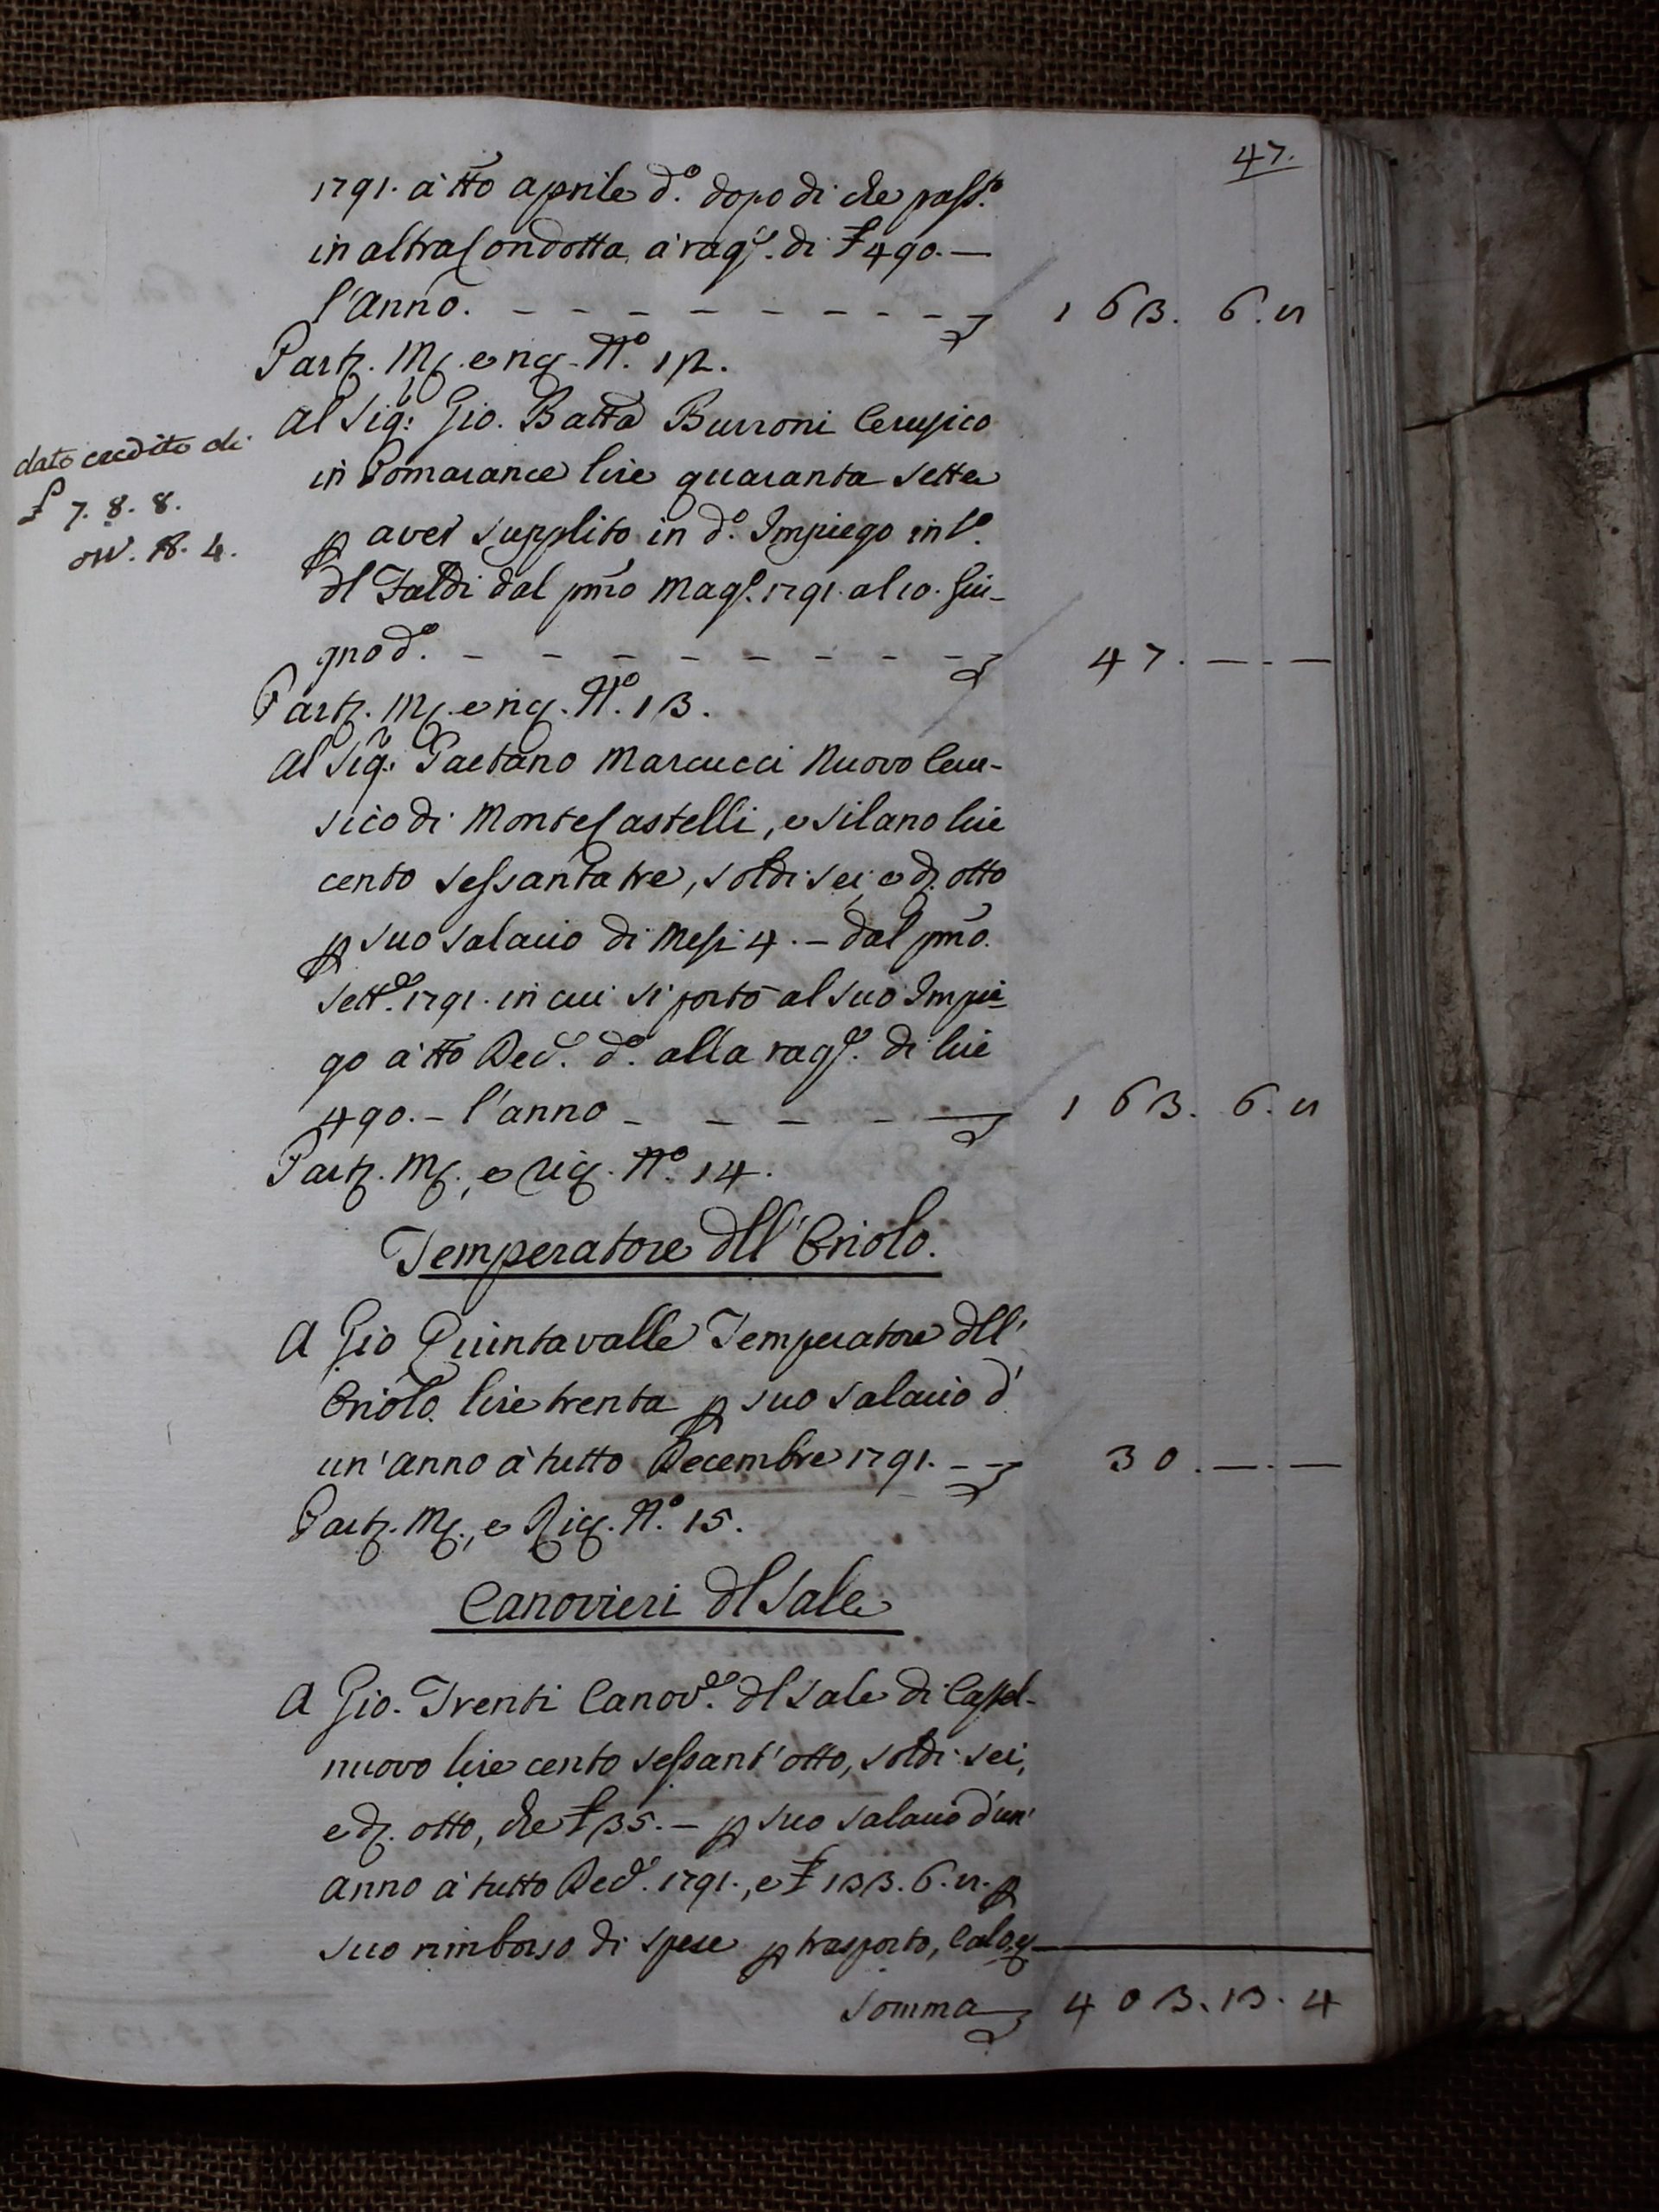 47.
1791. à tto aprile d.o dopo di che pass.o
in altra Condotta à rag.e di £ 490. —
l'anno. - - - - - - - - - 163. 6. 8
Part. M. e rig. N.o 12.
Al Sig.r Gio. Batta Burroni Cerusico
dato credito di
£ 7. 8. 8.
in Pomarance lire quaranta sette
p aver supplito in d.o Impiego in l.o
dl Faldi dal pmo Mag.o 1791. al 10. Giu-
gno d.o - - - - - - - - 47. — . —
Part. M. e rig. N.o 13.
Al Sig.r Gaetano Marcucci Nuovo Ceru-
sico di Monte Castelli, e Silano lire
cento sessanta tre, soldi sei, e d. otto
p suo salario di Mesi 4. — dal pmo.
Sett.e 1791. in cui si portò al suo Impie-
go à tto Dec.e d.o alla rag.e di lire
490. — l'anno - - - - — 163. 6. 8
Part. M., e Rig. N.o 14.
Temperatore dll' Oriolo.
A Gio Quintavalle Temperatore dll'
Oriolo. lire trenta p suo salario d'
un'anno à tutto Decembre 1791. - - 30. — . —
Part. M., e Rig. N.o 15.
Canovieri dl Sale
A Gio. Trenti Canov.e dl Sale di Castel-
nuovo lire cento sessant'otto, soldi sei,
e d. otto, che £ 35. — p suo salario d'un'
anno à tutto Dec.e 1791., e £ 133. 6. 8. p
suo rimborso di spese p trasporto, Calo, e
Somma 403. 13. 4